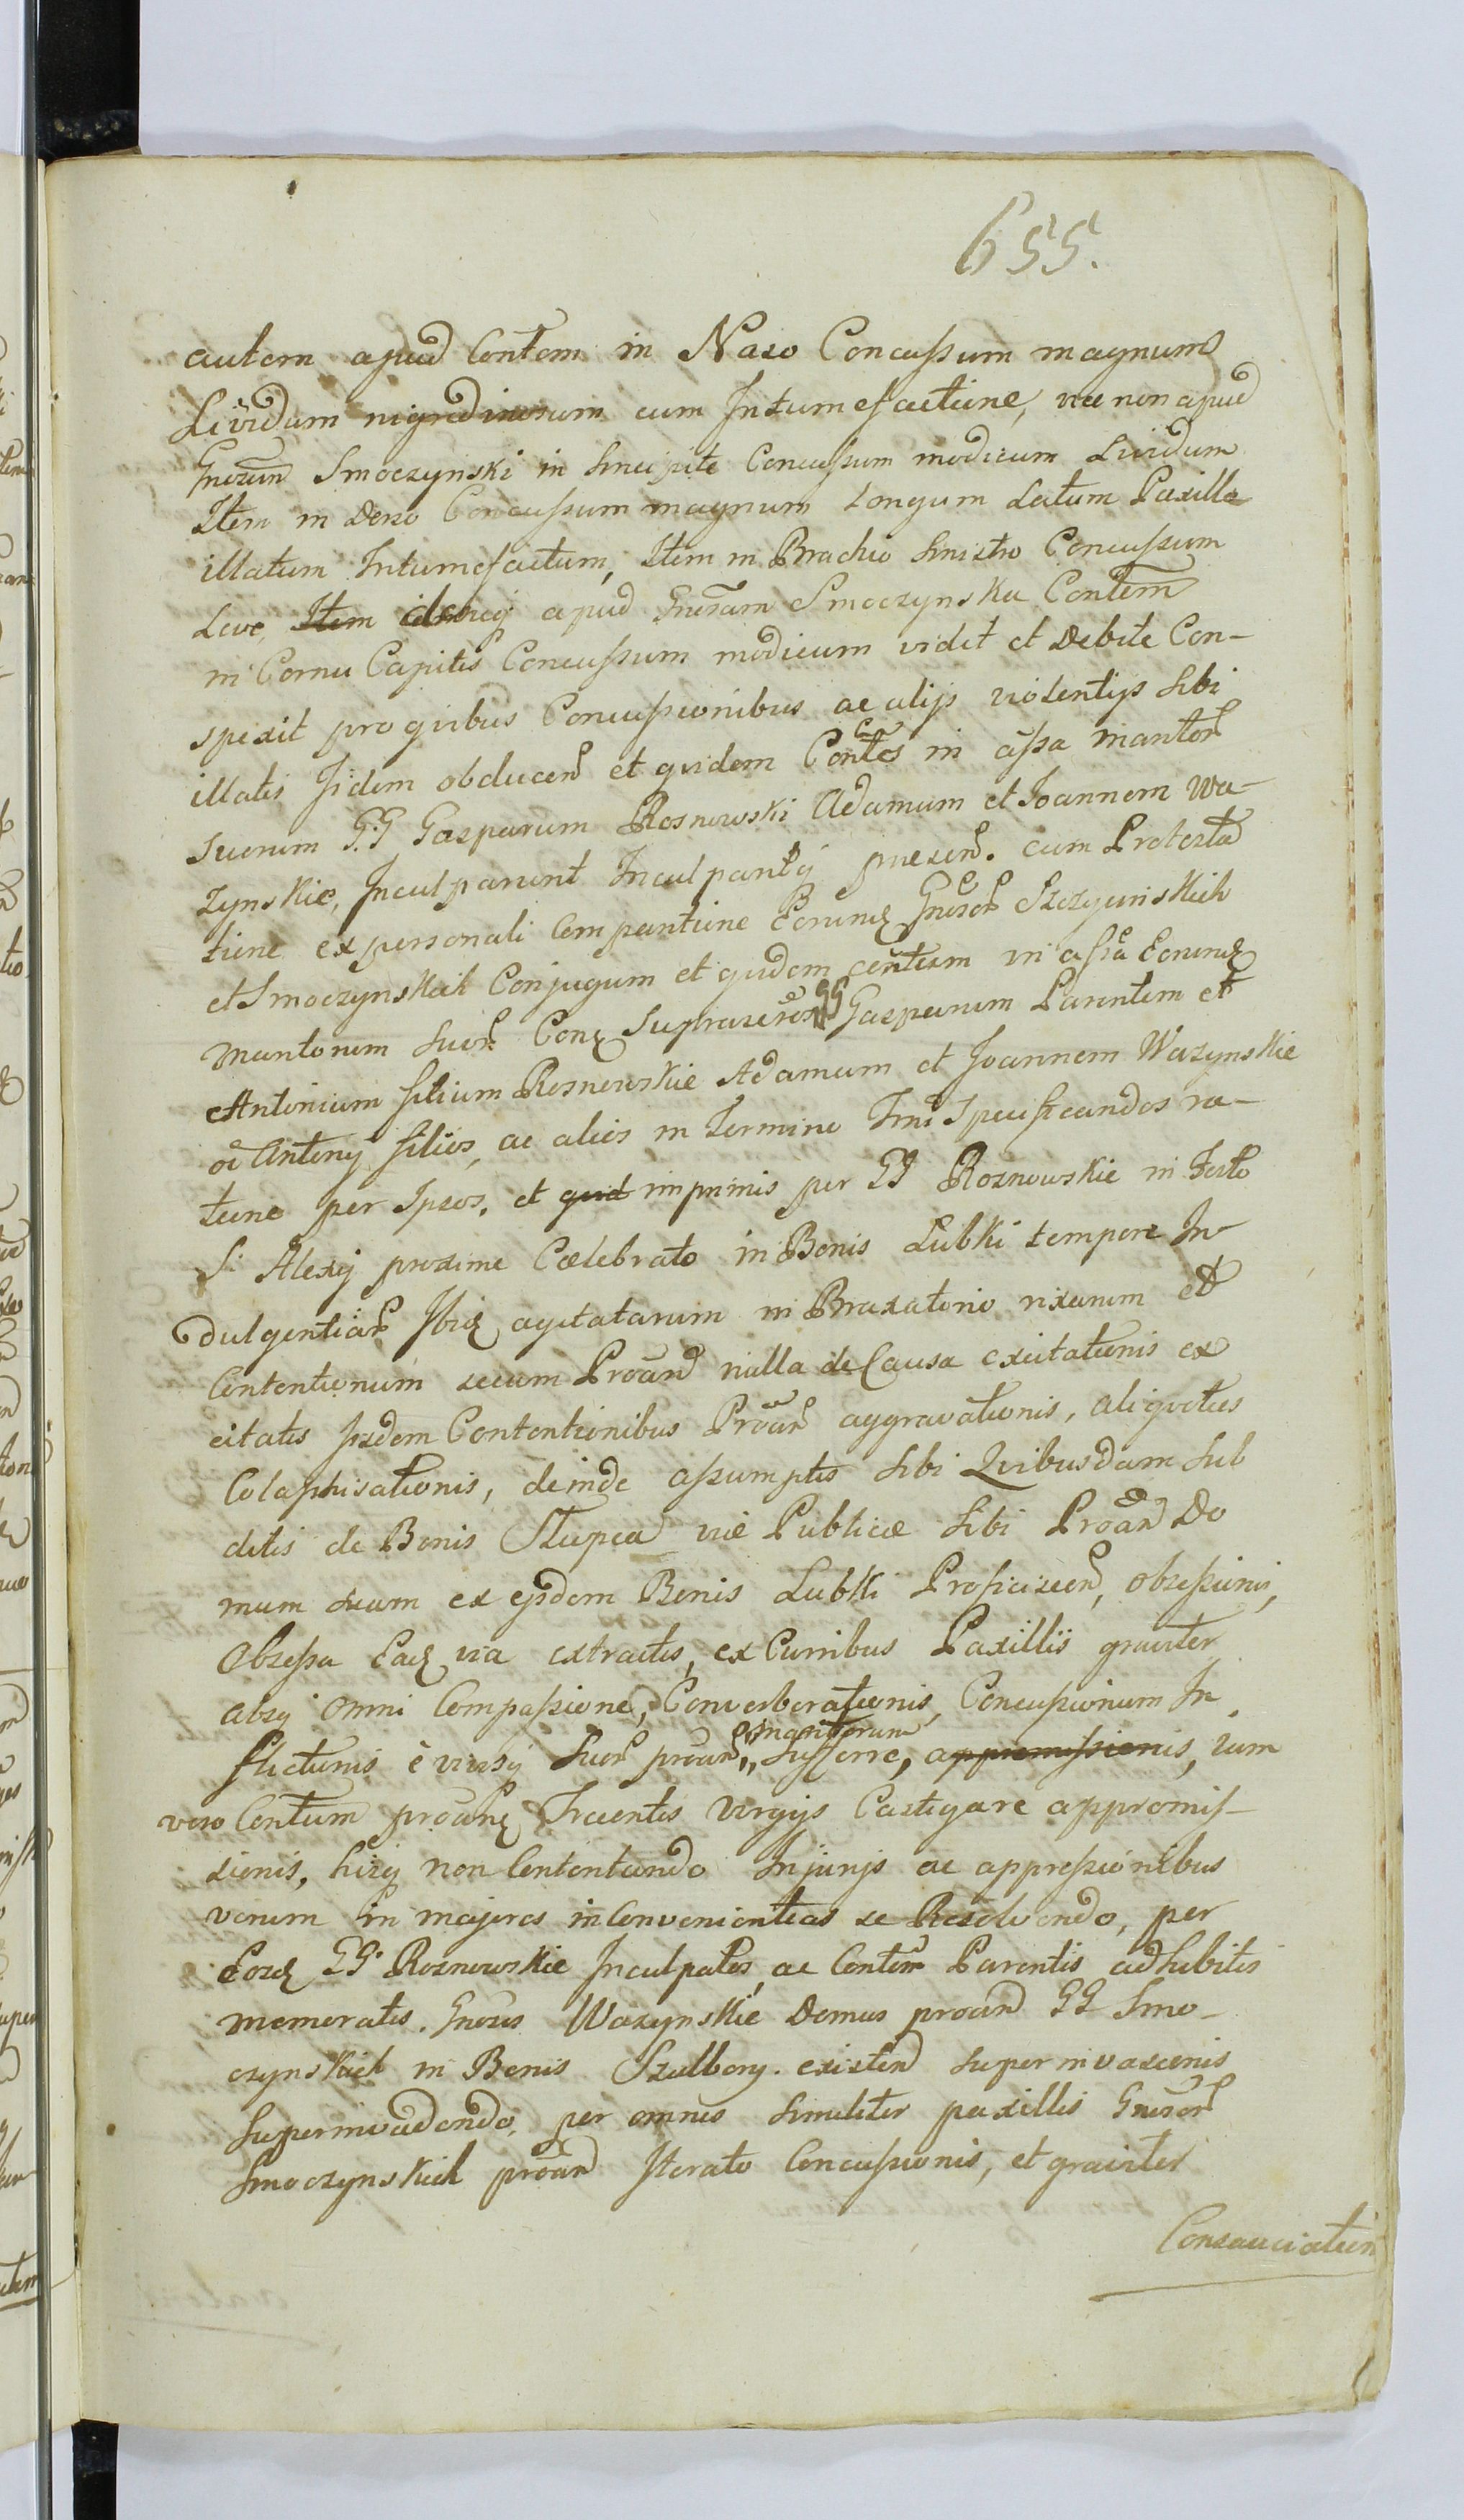 655.
autem apud Contem in Naso Concussum magnum
Lividum nigredinosum cum Intumefactione, nec non apud
Gnosum Smoczynski in sincipite Concussum modicum Lividum
Item in Dorso Concussum magnum Longum Latum Paxillo
illatum Intumefactum, Item in Brachio sinistro Concussum
Leve, Item apud Gnosam Smoczynska Contem
in Cornu Capitis Concussum modicum vidit et Debite Con-
spexit pro qvibus Concussionibus ac alijs violentijs sibi
illatis Iidem obducen et qvidem Contes in assa Maritor
suorum GG Gasparum Rosnowski Adamum et Joannem Wa-
zynskie, Inculparunt Inculpantq praesen. cum Protesta
tione ex personali Comparitione Eorund Gnosor Szczycinskich
et Smoczynskich Conjugum et qvidem centium in assa Eorund
Maritorum suor Con suprascros GG Gasparum Parentem et
Antonium filium Rosnowskie Adamum et Joannem Wazynskie
oi Antonij filios, ac alios in Termino Tmi Specificandos ra-
tione per Ipsos, et imprimis per GG Rosnowskie in Festo
S. Alexij proxime Caelebrato in Bonis Lubki tempore In
dulgentiar Ibid agitatarum in Braxatorio rixarum et
Contentionum secum Proan nulla de Causa excitationis ex
citatis Contentionibus Proan aggravationis, aliqvoties
Colaphisationis, deinde assumptis sibi Qvibusdam Sub
ditis de Bonis Slupca viae Publicae sibi Proan Do
mum suam ex ejsdem Bonis Lubki Proficiscen, obsessionis,
Obsessa Ead via extractis, ex Curribus Paxillis graviter
absq omni Compassione, Converberationis, Concussionum In
flictionis è vivisq suor proan, maritorum sufferre, appromissionis, tum
vero Centum proanq Trecentis virgijs Castigare appromis-
sionis, hisq non Contentando Injurijs ac oppressionibus
verum in majores inConvenientias se Resolvendo, per
Eosd GG Rosnowskie Inculpatos, ac Contem Parentis adhibitis
memoratis. Gnosis Wazynskie Domus proan GG Smo-
czynskich in Bonis Szulbory existen superinvasionis
superinvadendo, per omnes similiter paxillis Gnosor
Smoczynskich proan Iterato Concussionis, et graviter
Consauciation